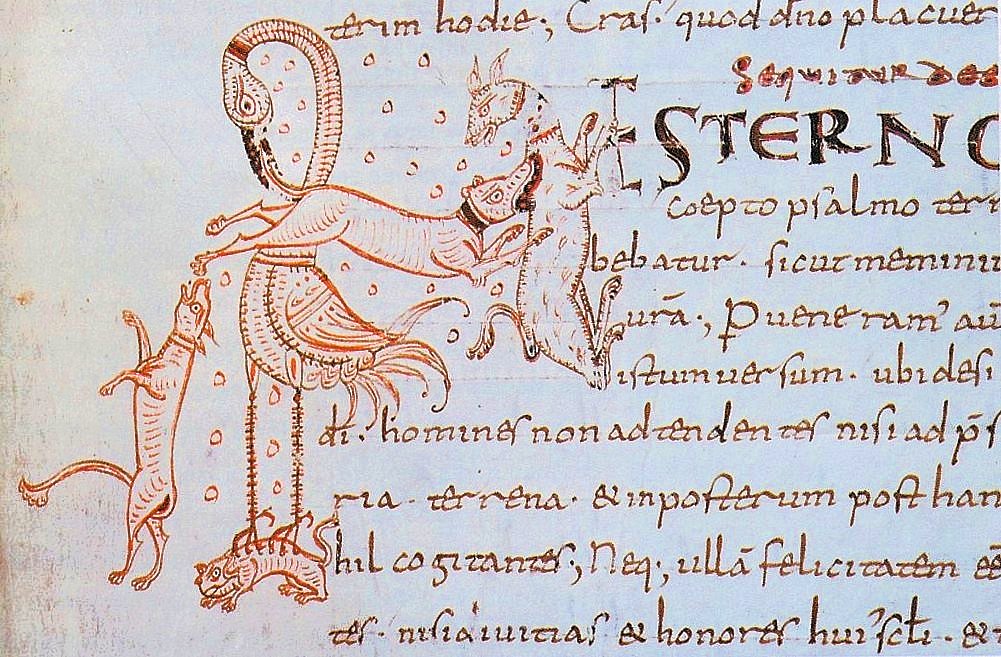 terim hodie; Cras· quod dño placuer
Sequitur de
ESTERNO
coepto psalmo ter
bebatur· sicut meminu
urā·, Puene ram' au
istum uersum· ubi desi
di· homines non adtendentes nisi ad p̄s
ria· terrena· & inposterum post han
hil cogitantes; Neq·, ullā felicitatem eē
tes· nisi diuitias & honores hui' scl̄i· &